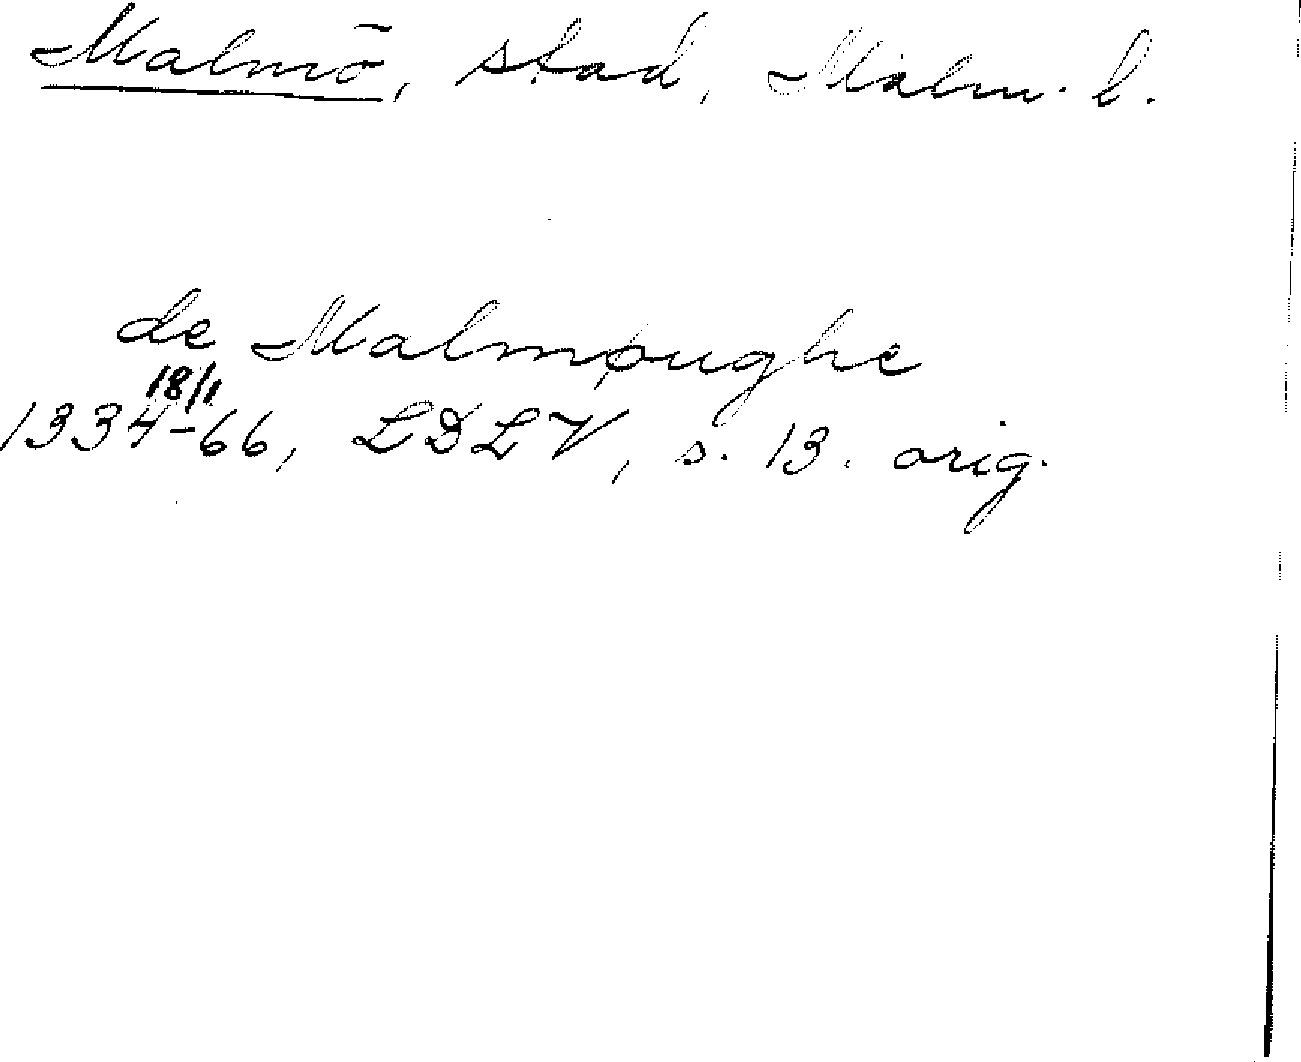 Malmö, stad, Malm. l.
de Malmøughe
18/1
1334-66, LDLV, s. 13. orig.